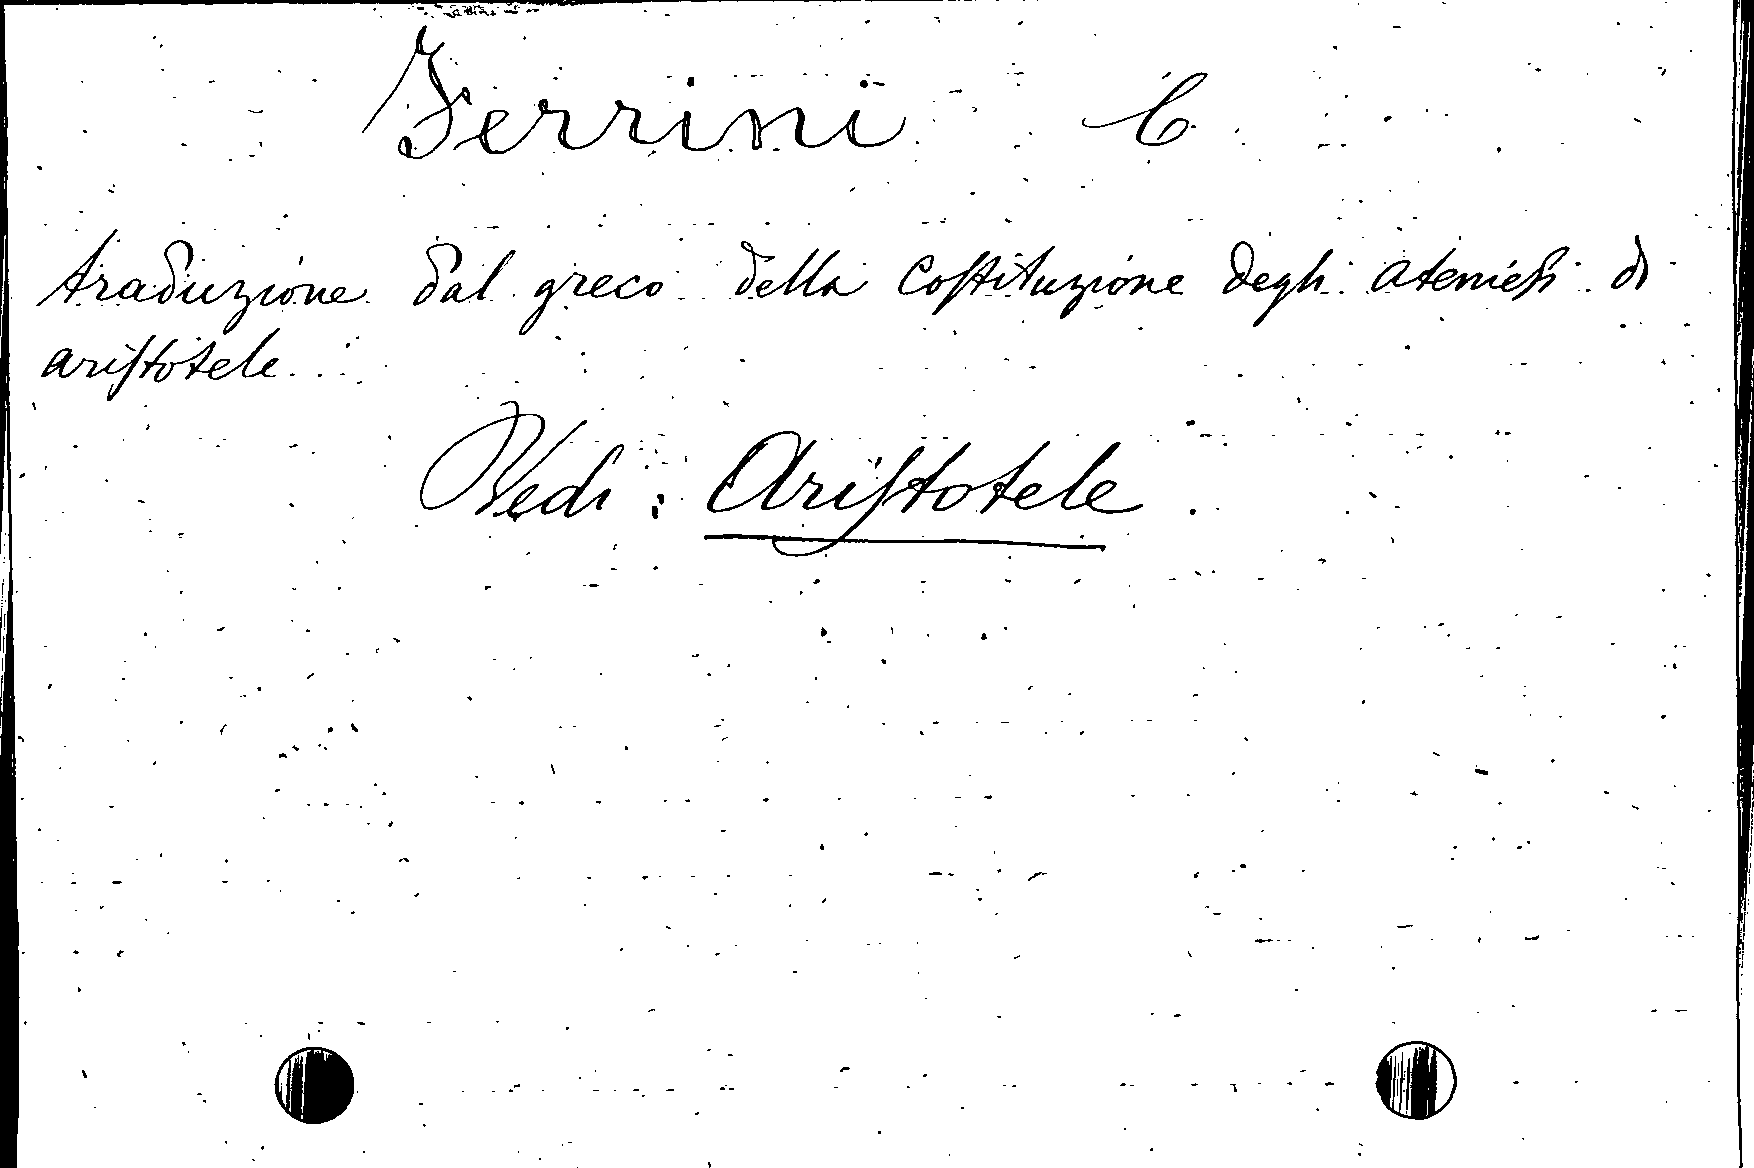 Ferrini C.
traduzione dal greco della Costituzione degli ateniesi di
aristotele
Vedi: Aristotele.